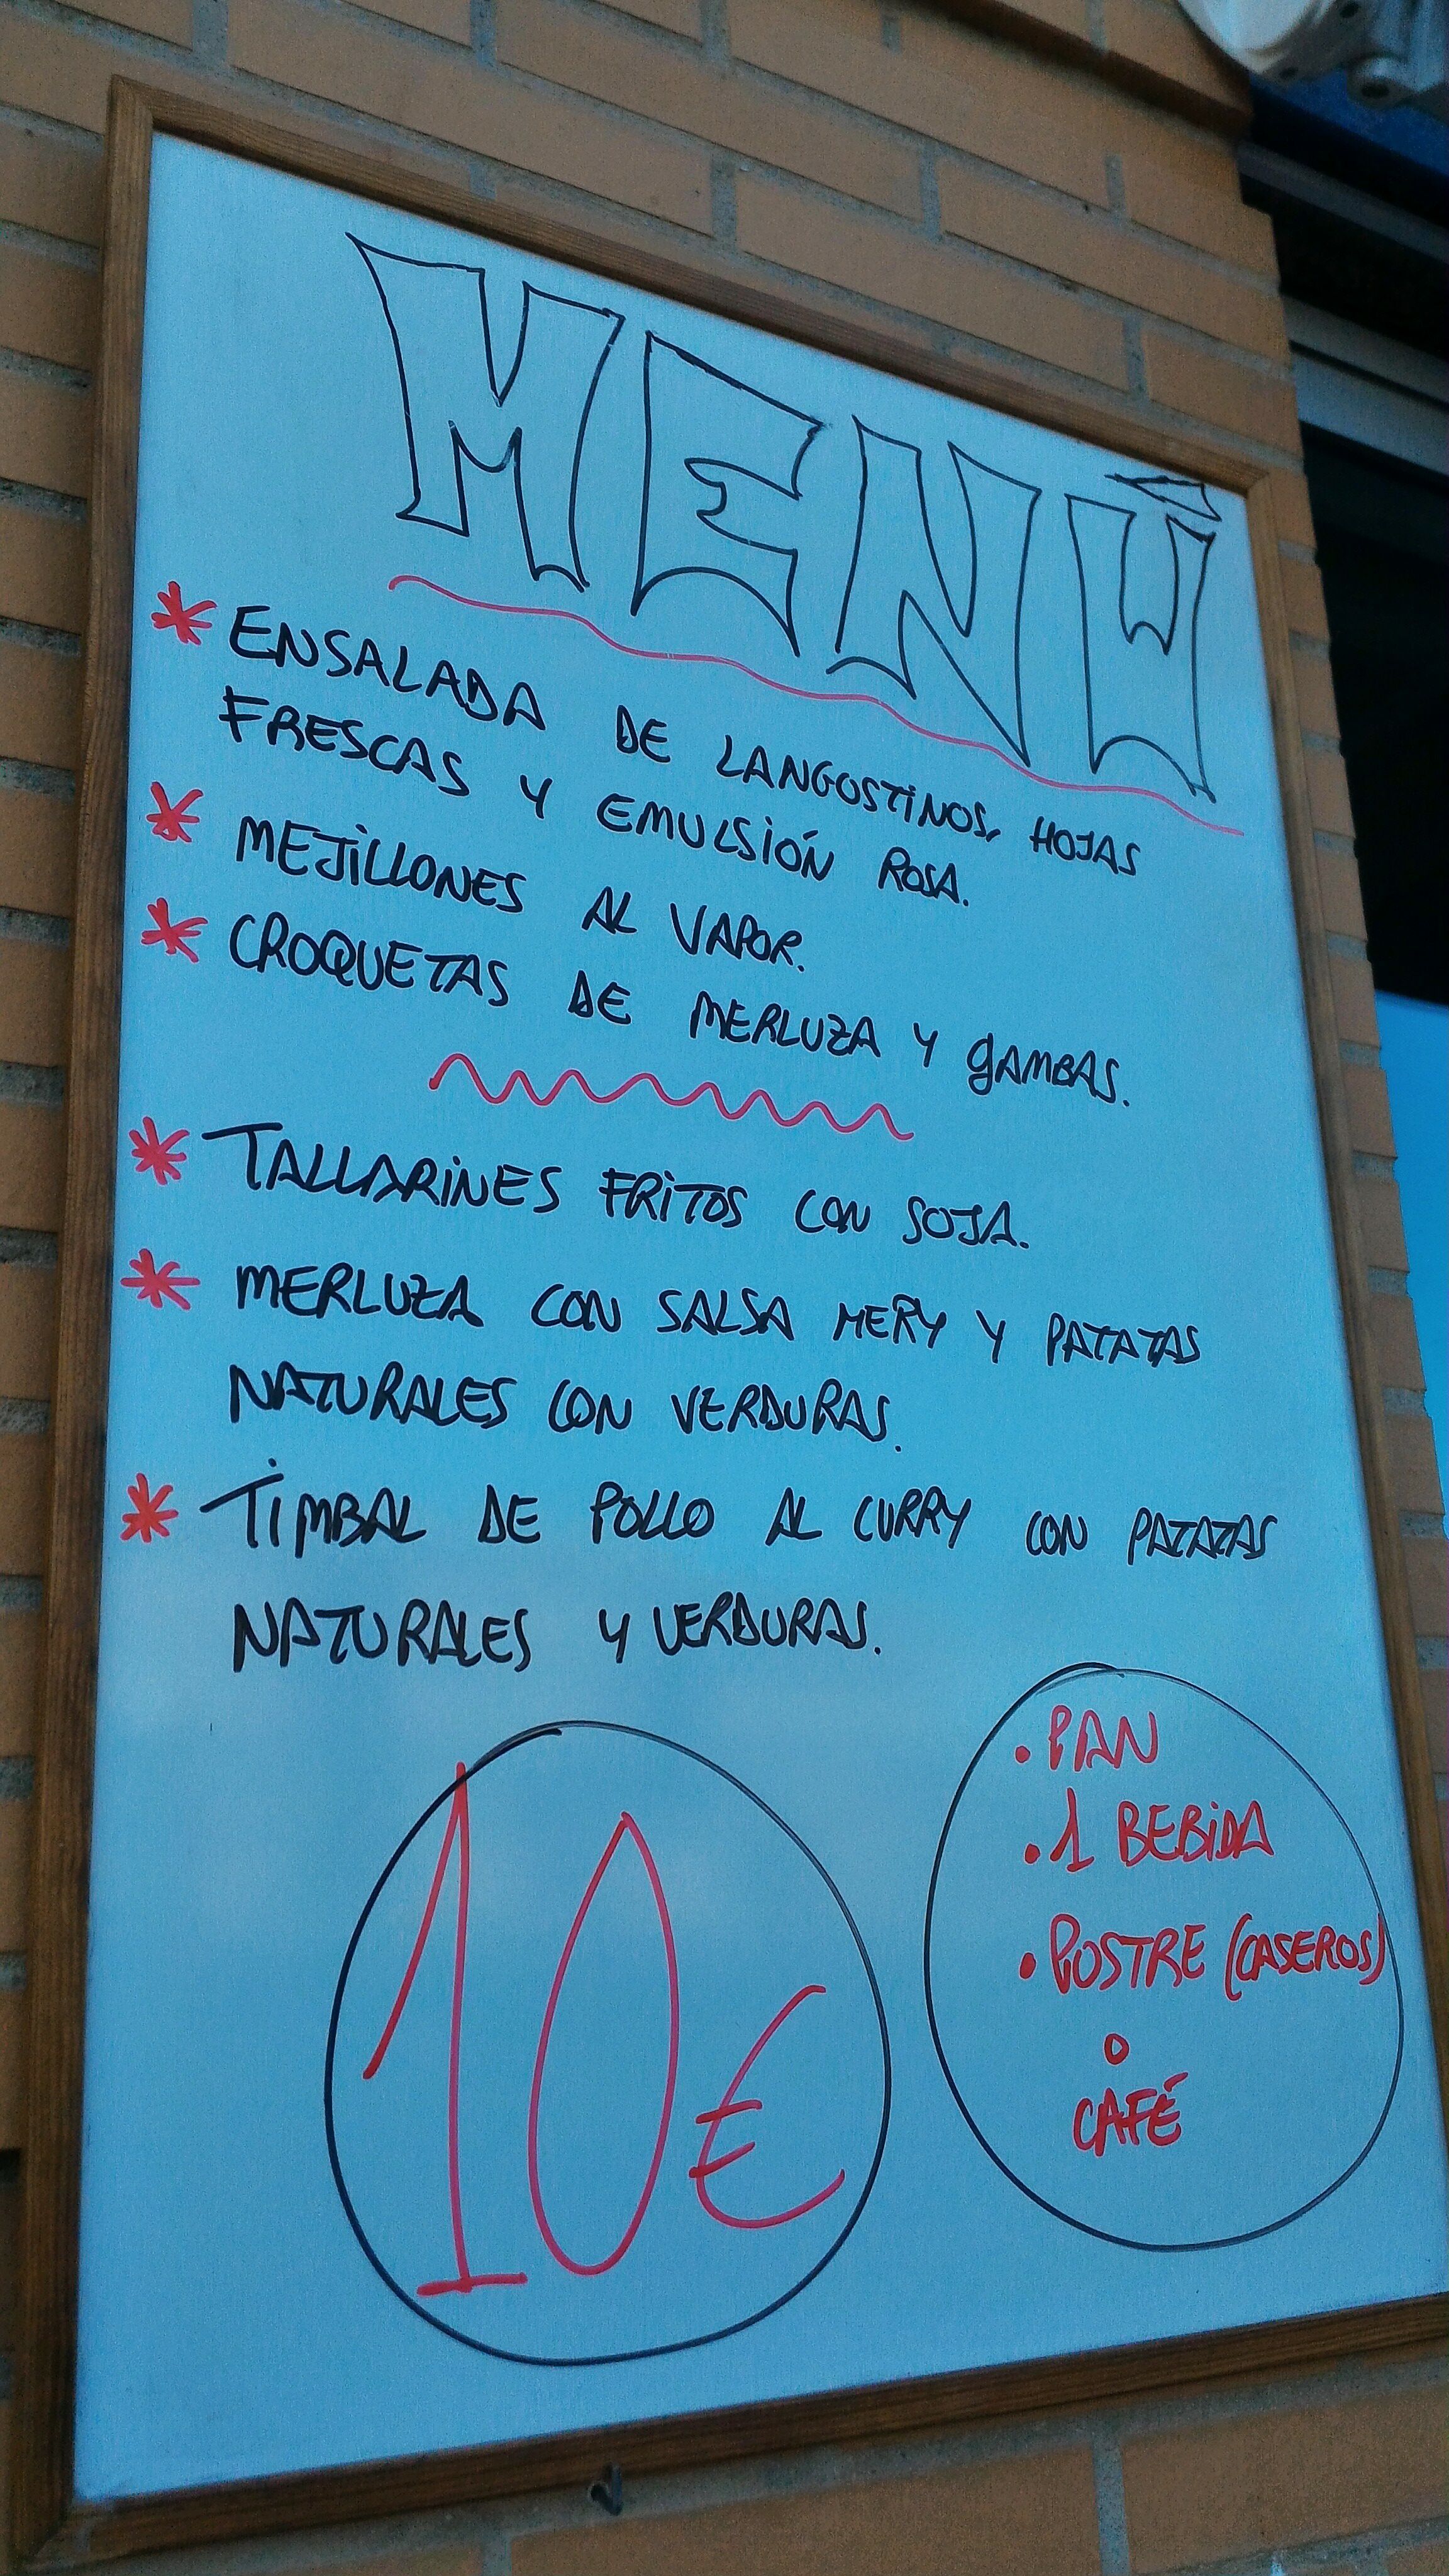 MENÚ
* ENSALADA DE LANGOSTINOS, HOJAS
FRESCAS Y EMULSIÓN ROSA.
* MEJILLONES AL VAPOR.
* CROQUETAS DE MERLUZA Y GAMBAS.
* TALLARINES FRITOS CON SOJA.
* MERLUZA CON SALSA MERY Y PATATAS
NATURALES CON VERDURAS.
* TIMBAL DE POLLO AL CURRY CON PATATAS
NATURALES Y VERDURAS.
10€
• PAN
• 1 BEBIDA
• POSTRE (CASEROS)
O
CAFÉ